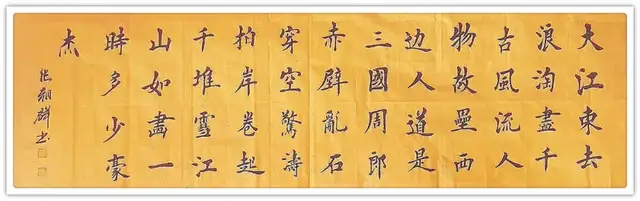 大江東去
浪淘盡千
古風流人
物故壘西
边人道是
三國周郎
赤壁亂石
穿空驚濤
拍岸卷起
千堆雪江
山如畫一
時多少豪
杰